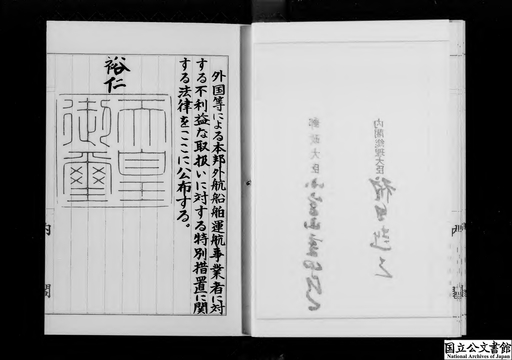 内閣総理大臣 福田赳夫
郵政大臣
外国等による本邦外航船舶運航事業者に対
する不利益な取扱いに対する特別措置に関
する法律をここに公布する。
裕仁
天皇
御璽
内閣
国立公文書館
National Archives of Japan